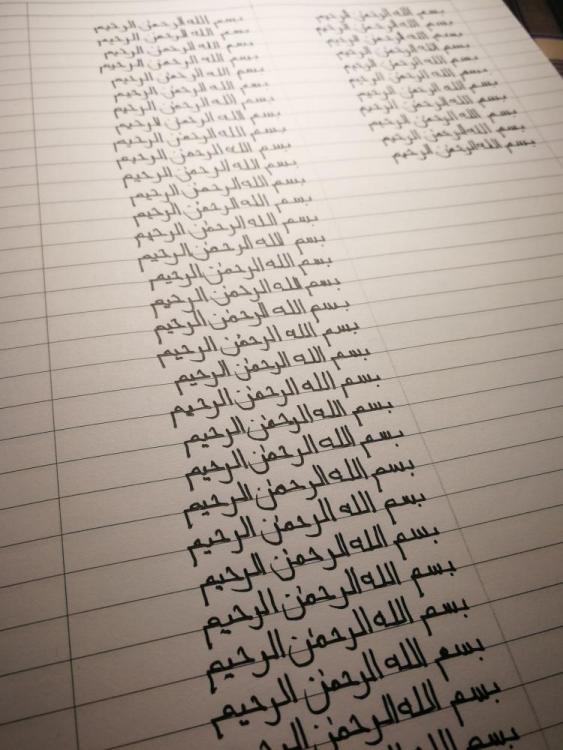 بسم الله الرحمٰن الرحيم
بسم الله الرحمٰن الرحيم
بسم الله الرحمٰن الرحيم
بسم الله الرحمٰن الرحيم
بسم الله الرحمٰن الرحيم
بسم الله الرحمٰن الرحيم
بسم الله الرحمٰن الرحيم
بسم الله الرحمٰن الرحيم
بسم الله الرحمٰن الرحيم
بسم الله الرحمٰن الرحيم
بسم الله الرحمٰن الرحيم
بسم الله الرحمٰن الرحيم
بسم الله الرحمٰن الرحيم
بسم الله الرحمٰن الرحيم
بسم الله الرحمٰن الرحيم
بسم الله الرحمٰن الرحيم
بسم الله الرحمٰن الرحيم
بسم الله الرحمٰن الرحيم
بسم الله الرحمٰن الرحيم
بسم الله الرحمٰن الرحيم
بسم الله الرحمٰن الرحيم
بسم الله الرحمٰن الرحيم
بسم الله الرحمٰن الرحيم
بسم الله الرحمٰن الرحيم
بسم الله الرحمٰن الرحيم
بسم الله الرحمٰن الرحيم
بسم الله الرحمٰن الرحيم
بسم الله الرحمٰن الرحيم
بسم الله الرحمٰن الرحيم
بسم الله الرحمٰن الرحيم
بسم الله الرحمٰن الرحيم
بسم الله الرحمٰن الرحيم
بسم الله الرحمٰن الرحيم
بسم الله الرحمٰن الرحيم
بسم الله الرحمٰن الرحيم
بسم الله الرحمٰن الرحيم
بسم الله الرحمٰن الرحيم
بسم الله الرحمٰن الرحيم
بسم الله الرحمٰن الرحيم
بسم الله الرحمٰن الرحيم
بسم الله الرحمٰن الرحيم
بسم